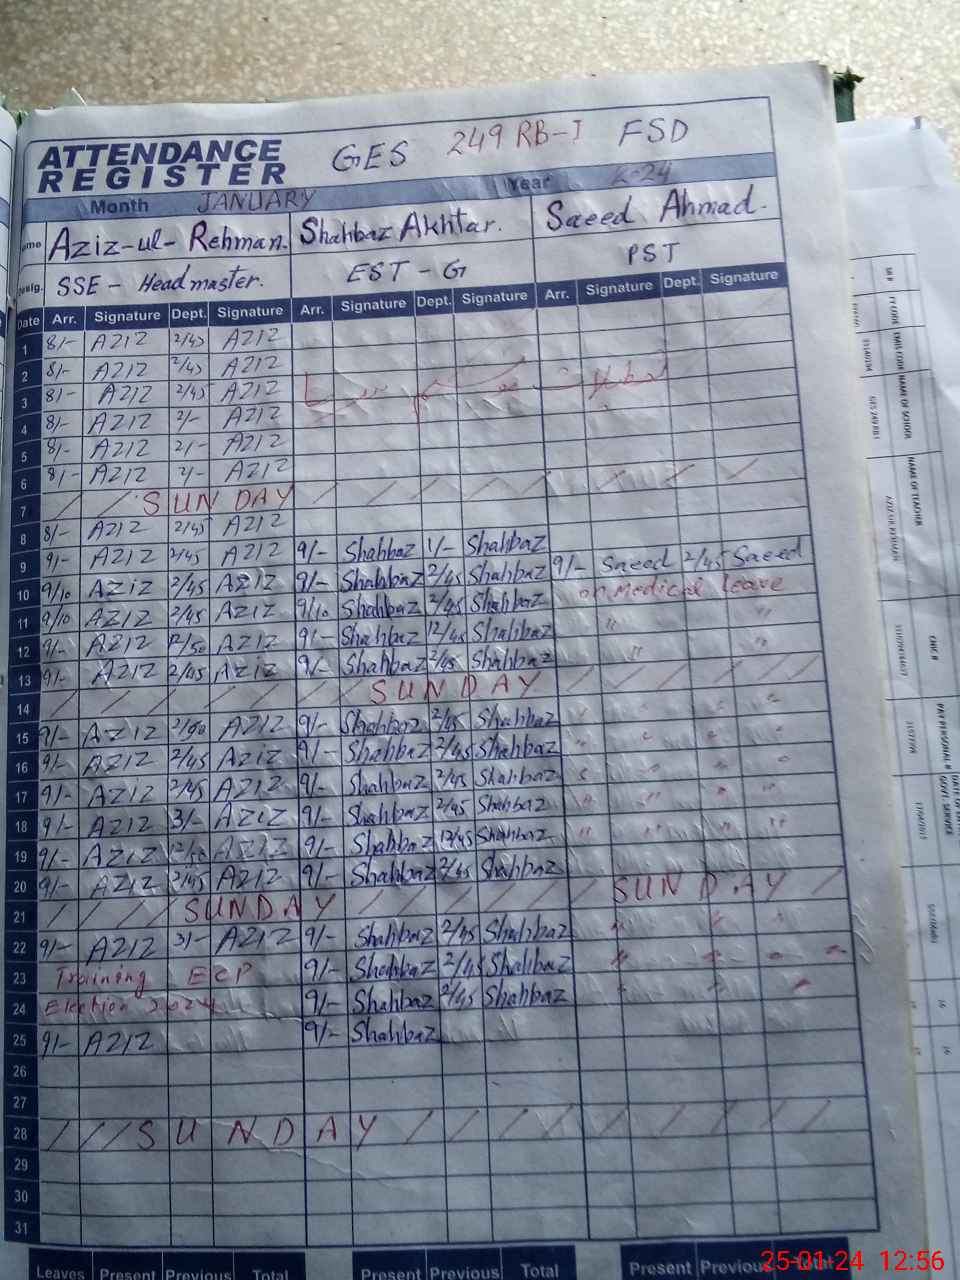 ATTENDANCE REGISTER GES 249 RB-I FSD
Month JANUARY Year 2024
Name Aziz-ul-Rehman. Shahbaz Akhtar. Saeed Ahmad.
Desig. SSE - Headmaster. EST - G PST
Date Arr. Signature Dept. Signature Arr. Signature Dept. Signature Arr. Signature Dept. Signature
1 8/- AZIZ 2/45 AZIZ
2 8/- AZIZ 2/45 AZIZ
3 8/- AZIZ 2/45 AZIZ
4 8/- AZIZ 2/- AZIZ
5 8/- AZIZ 2/- AZIZ
6 8/- AZIZ 2/- AZIZ
7 SUNDAY
8 8/- AZIZ 2/45 AZIZ
9 9/- AZIZ 2/45 AZIZ 9/- Shahbaz 1/- Shahbaz
10 9/10 AZIZ 2/45 AZIZ 9/- Shahbaz 2/45 Shahbaz 9/- Saeed 2/45 Saeed
11 9/10 AZIZ 2/45 AZIZ 9/10 Shahbaz 2/45 Shahbaz on Medical leave
12 9/- AZIZ 12/50 AZIZ 9/- Shahbaz 12/45 Shahbaz " "
13 9/- AZIZ 2/45 AZIZ 9/- Shahbaz 2/45 Shahbaz " "
14 SUNDAY
15 9/- AZIZ AZIZ 9/- Shahbaz 2/45 Shahbaz
16 9/- AZIZ 2/45 AZIZ 9/- Shahbaz 2/45 Shahbaz
17 9/- AZIZ 2/45 AZIZ 9/- Shahbaz 2/45 Shahbaz
18 9/- AZIZ 3/- AZIZ 9/- Shahbaz 2/45 Shahbaz " " " "
19 9/- AZIZ 12/50 AZIZ 9/- Shahbaz 12/45 Shahbaz " " " "
20 9/- AZIZ 2/45 AZIZ 9/- Shahbaz 2/45 Shahbaz
21 SUNDAY SUNDAY
22 9/- AZIZ 3/- AZIZ 9/- Shahbaz 2/45 Shahbaz
23 Training ECP 9/- Shahbaz 2/45 Shahbaz
24 Election 2024 9/- Shahbaz 2/45 Shahbaz
25 9/- AZIZ 9/- Shahbaz
26
27
28 SUNDAY
29
30
31
Leaves Present Previous Total Present Previous Total Present Previous Total
25-01-24 12:56
SR #
NAME OF SCHOOL
NAME OF TEACHER
CNIC #